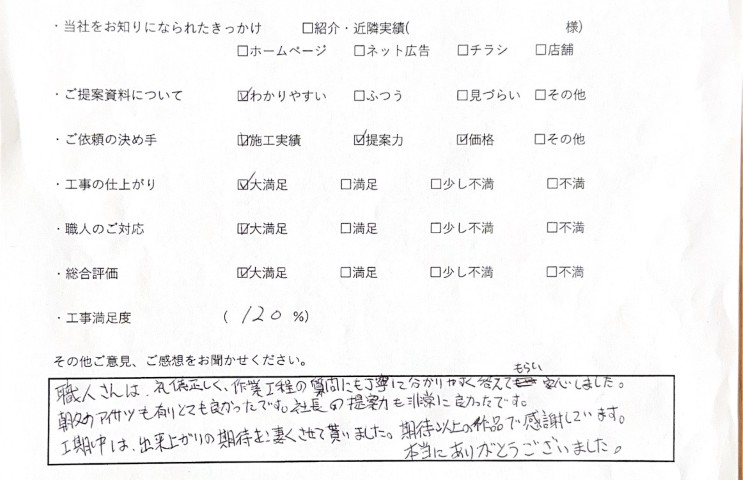 ・当社をお知りになられたきっかけ □紹介・近隣実績( 様)
□ホームページ □ネット広告 □チラシ □店舗
・ご提案資料について ☑わかりやすい □ふつう □見づらい □その他
・ご依頼の決め手 ☑施工実績 ☑提案力 ☑価格 □その他
・工事の仕上がり ☑大満足 □満足 □少し不満 □不満
・職人のご対応 ☑大満足 □満足 □少し不満 □不満
・総合評価 ☑大満足 □満足 □少し不満 □不満
・工事満足度 ( 120 %)
その他ご意見、ご感想をお聞かせください。
職人さんは、礼儀正しく、作業工程の質問にも丁寧に分かりやすく答えてもらい安心しました。
朝夕のアイサツも有りとても良かったです。社長の提案力も非常に良かったです。
工期中は、出来上がりの期待を凄くさせて貰いました。期待以上の作品で感謝しています。
本当にありがとうございました。